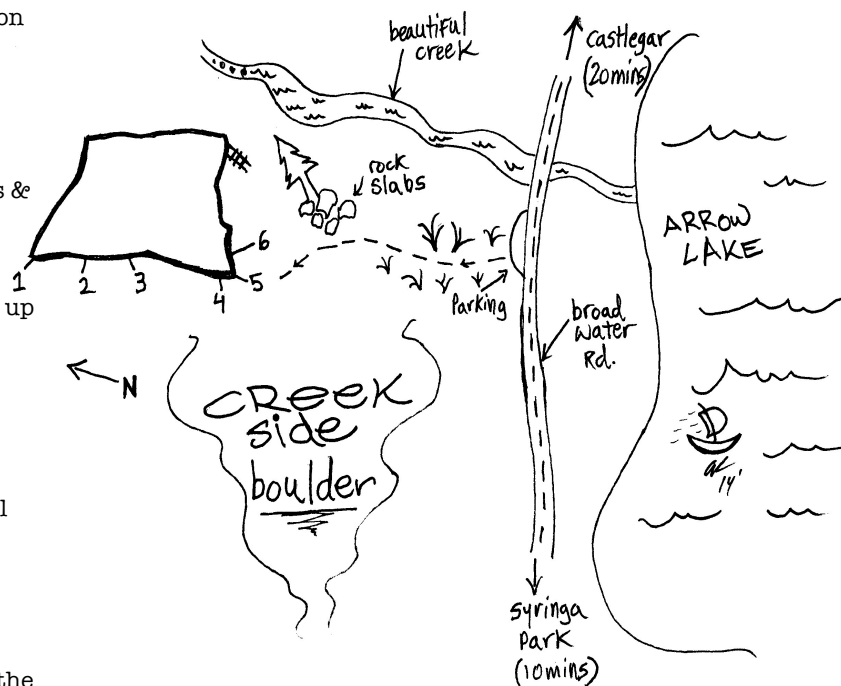 on
beautiful
creek
castlegar
(20mins)
s &
rock
slabs
6
ARROW
LAKE
1
2
3
4
5
up
Parking
broad
water
Rd.
N
CREEK
side
boulder
14'
l
syringa
park
(10mins)
the